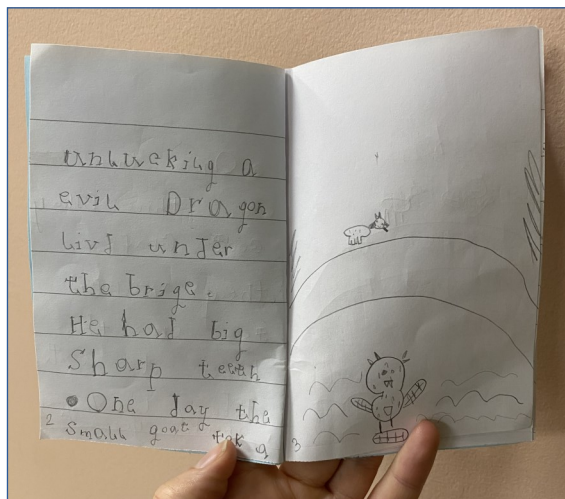 unlucking a
evil Dragon
livd under
the brige.
He had big
Sharp teeth
One day the
2 small goat tok a
3